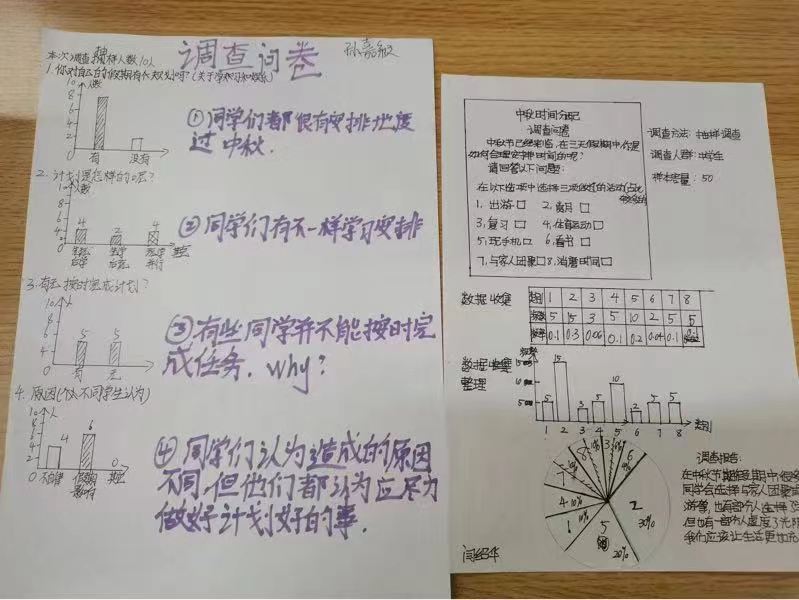 调查问卷
孙嘉敏
本次调查抽样人数10人
1.你对自己的假期有长期规划吗?(关于学习和娱乐)
人数
10
8
6
4
2
0
有 没有
①同学们都很有安排地度
过中秋.
2.计划是怎样的呢?
人数
10
8
6
4
2
0
4 2 4
其它
②同学们有不一样学习安排
3.有无按时完成计划?
10
8
4
0
5 5
有 无
③有些同学并不能按时完
成任务.why?
4.原因(个人不同学生认为)
10
8
6
4
2
0
4 6 0
不自律 假期影响 其它
④同学们认为造成的原因
不同,但他们都认为应尽力
做好计划好的事.
中秋时间分配
调查问卷
中秋节已经来临,在三天假期中,你是
如何合理安排时间的呢?
请回答以下问题:
在以下选项中选择三项做过的活动
1.出游□ 2.赏月□
3.复习□ 4.体育运动□
5.玩手机□ 6.看书□
7.与家人团聚□ 8.消磨时间□
调查方法:抽样调查
调查人群:中学生
样本容量:50
数据收集
类别 1 2 3 4 5 6 7 8
频数 5 15 3 5 10 2 5 5
频率 0.1 0.3 0.06 0.1 0.2 0.04 0.1
数据
整理
频数
15
10
5
5 15 3 5 10 2 5 5
1 2 3 4 5 6 7 8 类别
2
30%
5
20%
1 10%
4 10%
7 10%
8 10%
3
6
调查报告:
在中秋节期假期中,很多
同学会选择与家人团聚
游者,也有部分人选择
但也有一部分人虚度3天
我们应该让生活更加充
闫绍华